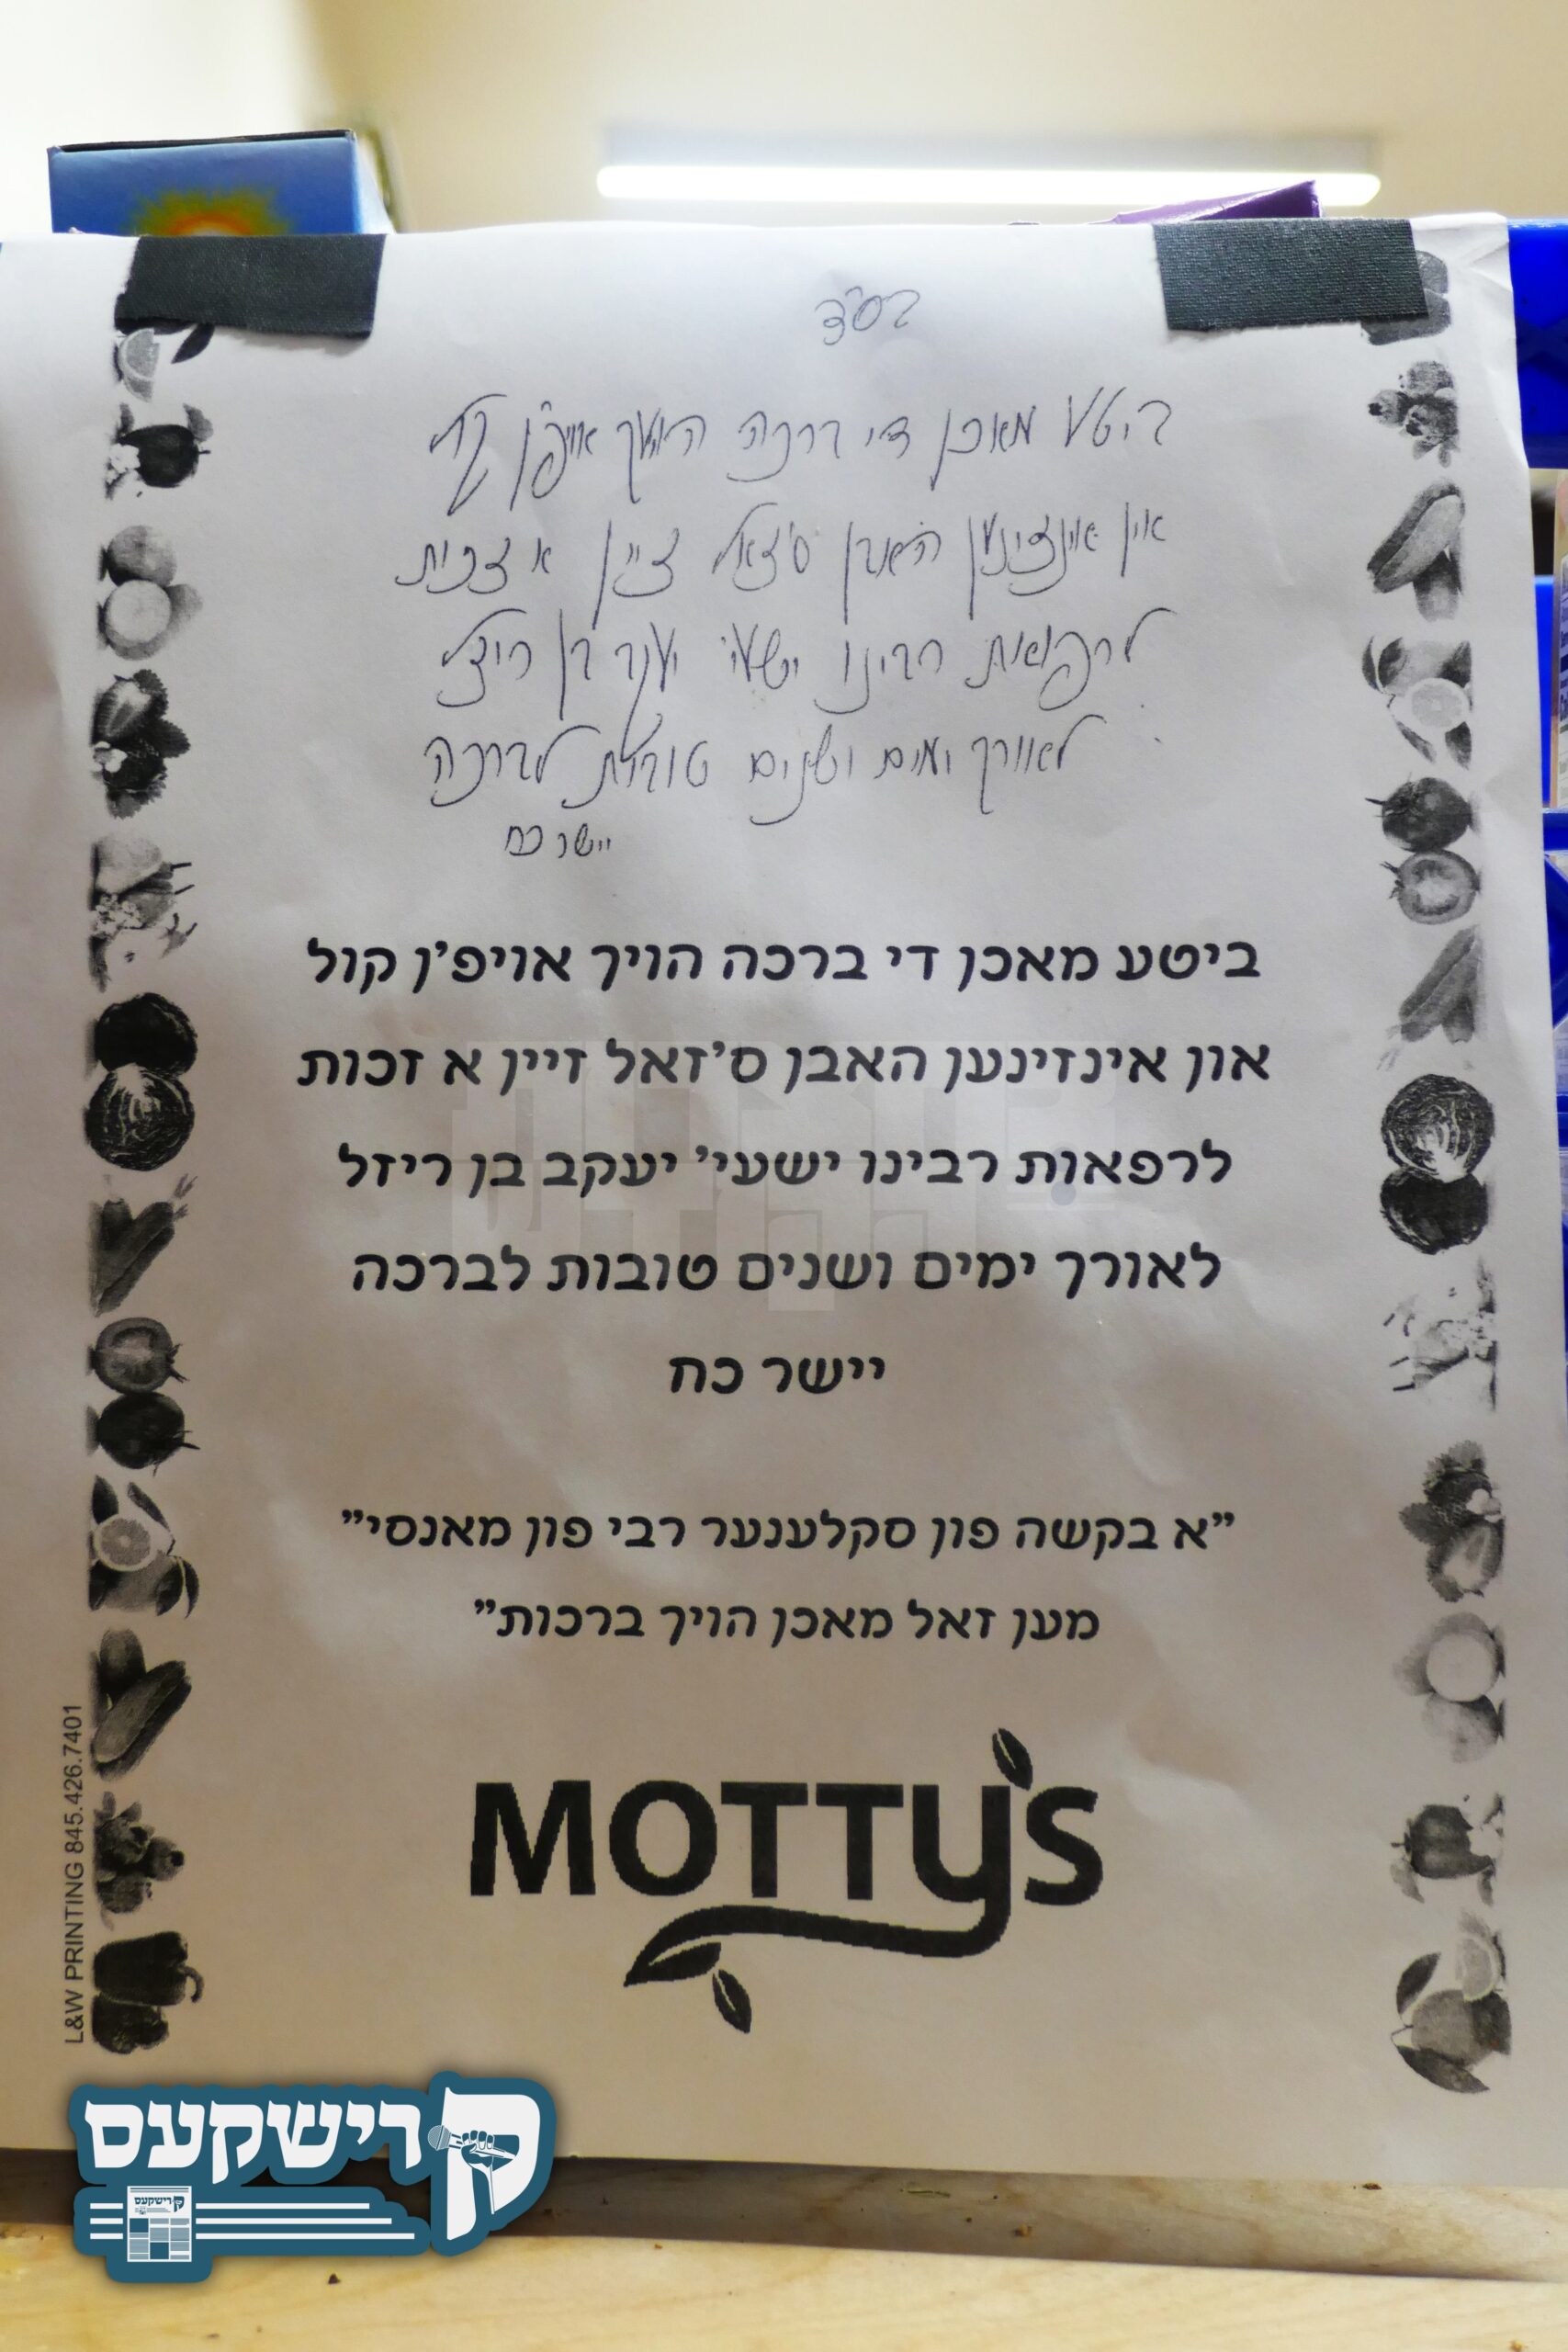 בס"ד
ביטע מאכן די ברכה הויך אויפ'ן קול
און אינזינען האבן ס'זאל זיין א זכות
לרפואת רבינו ישעי' יעקב בן ריזל
לאורך ימים ושנים טובות לברכה
יישר כח
ביטע מאכן די ברכה הויך אויפ'ן קול
און אינזינען האבן ס'זאל זיין א זכות
לרפאות רבינו ישעי' יעקב בן ריזל
לאורך ימים ושנים טובות לברכה
יישר כח
"א בקשה פון סקלענער רבי פון מאנסי"
מען זאל מאכן הויך ברכות"
MOTTY'S
L&W PRINTING 845.426.7401
קרישקעס
קרישקעס